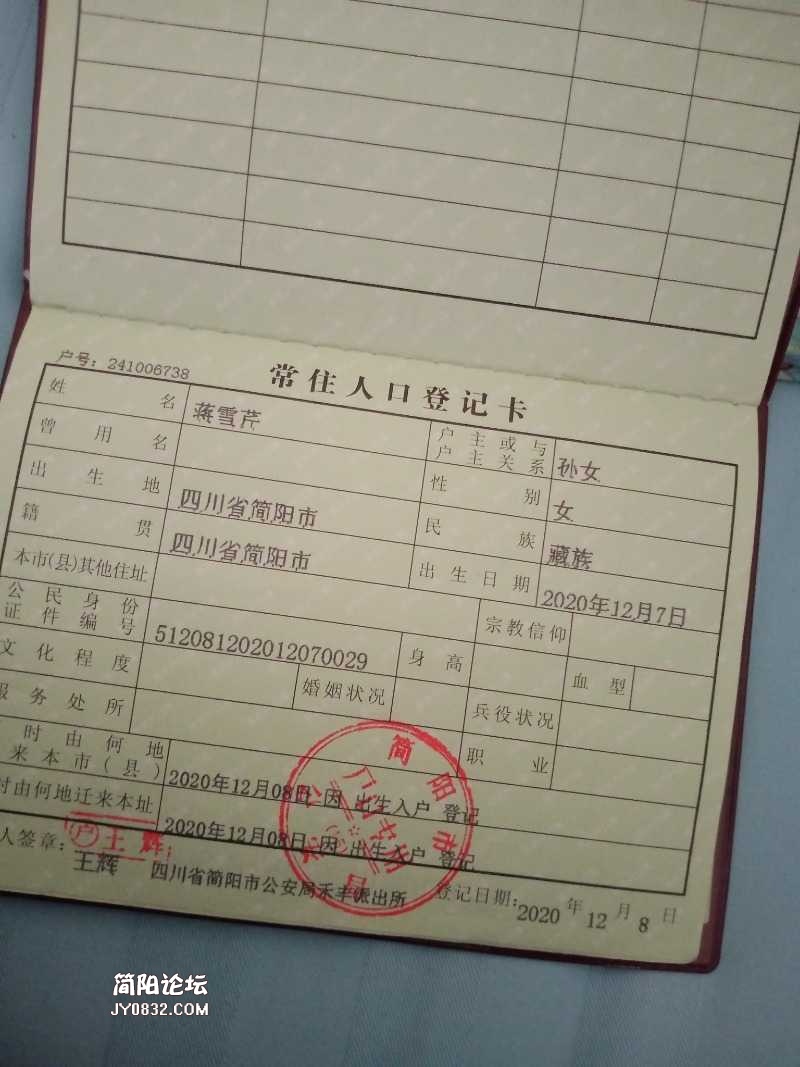 户号：241006738
常住人口登记卡
姓名 蒋雪芹 户主或与户主关系 孙女
曾用名 性别 女
出生地 四川省简阳市 民族 藏族
籍贯 四川省简阳市 出生日期 2020年12月7日
本市(县)其他住址 宗教信仰
公民身份证件编号 512081202012070029 身高 血型
文化程度 婚姻状况 兵役状况
服务处所 职业
时由何地来本市(县) 2020年12月08日 因 出生入户 登记
时由何地迁来本址 2020年12月08日 因 出生入户 登记
人签章： 户 王辉
王辉 四川省简阳市公安局禾丰派出所 登记日期：2020年12月8日
简阳市公安局
户口专用
简阳论坛
JY0832.COM